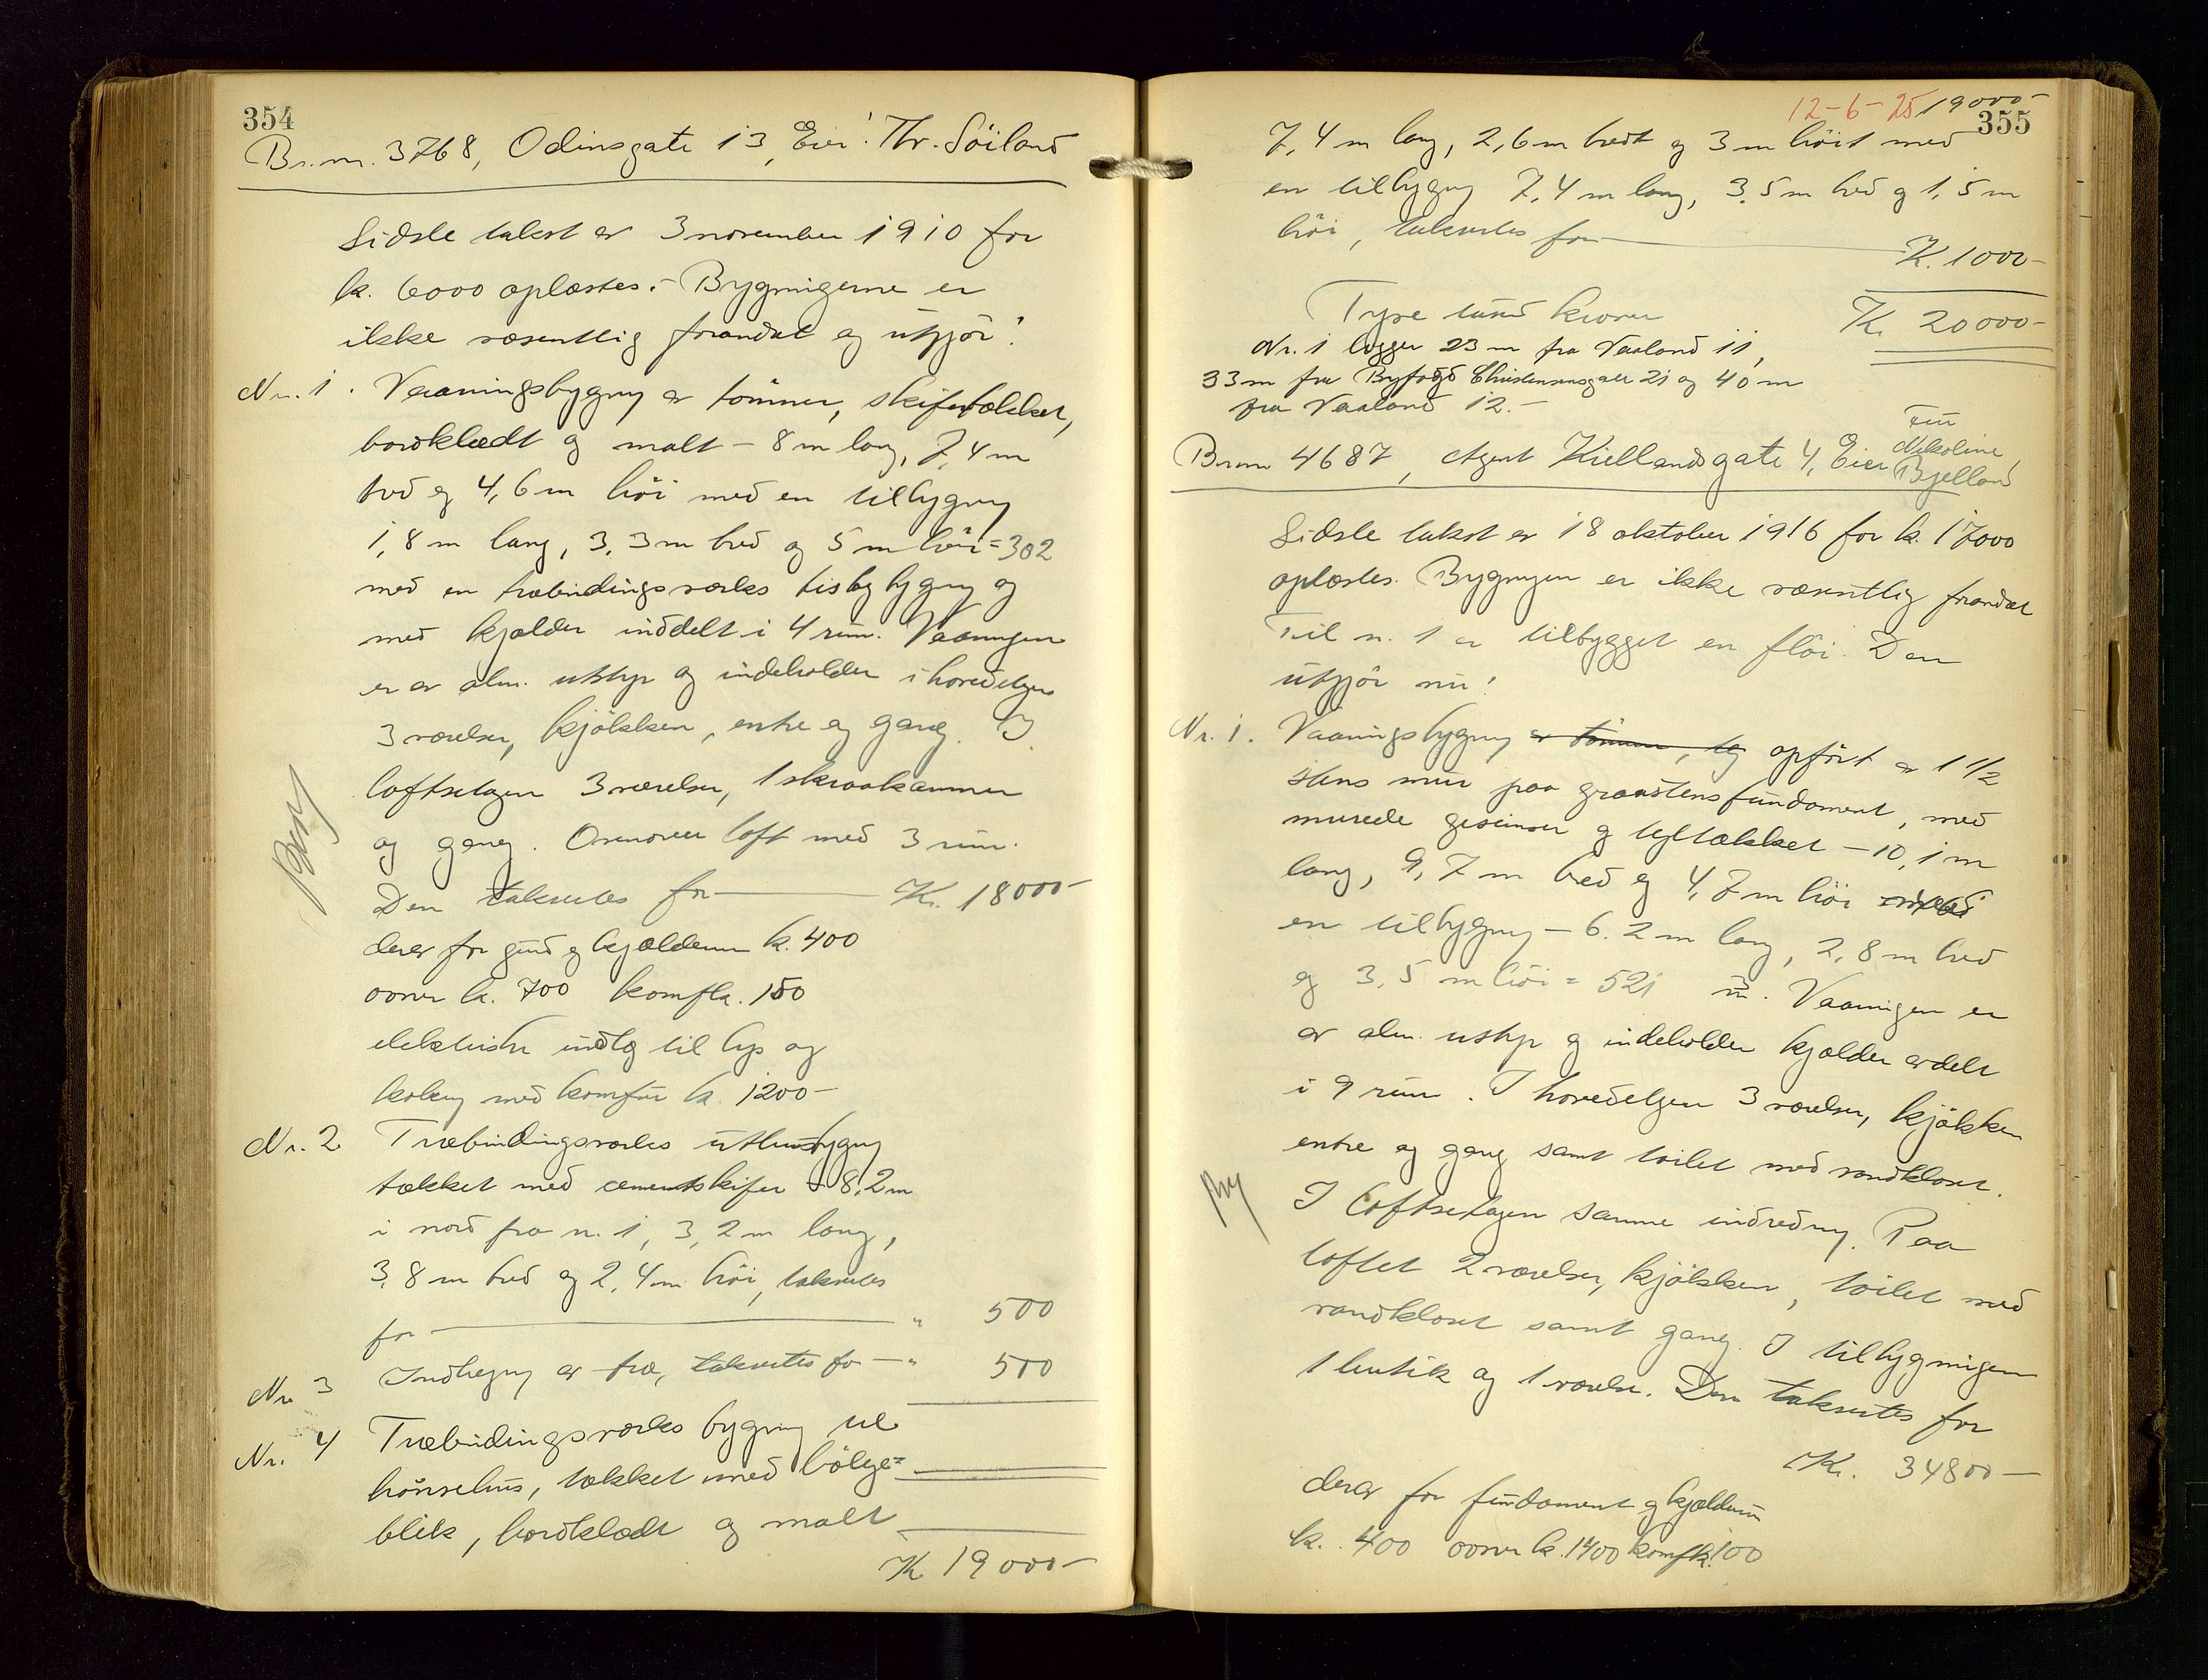 354
Br.nr. 3768, Odinsgate 13, Eier: Thr. Söiland
Sidste takst er 3 november 1910 for
k. 6000 oplæstes. - Bygningerne er
ikke væsentlig forandret og utgjör:
Nr. 1. Vaaningsbygning av tömmer, skifertækket,
bordklædt og malt - 8 m lang, 7,4 m
bred og 4,6 m höi med en tilbygning
1,8 m lang, 3,3 m bred og 5 m höi = 302
med en træbindingsverks bislagbygning og
med kjælder inddelt i 4 rum. Vaaningen
er av alm. utstyr og indeholder i hovedetagen
3 værelser, kjökken, entre og gang. I
loftsetagen 3 værelser, 1 skraakammer
og gang. Ovenover loft med 3 rum.
Den takseres for Kr. 18000-
derav for grund og kjælderrum k. 400
ovner k. 700 komf k. 150
elektriske indlæg til lys og
kokning med komfur k. 1200-
Nr. 2 Træbindingsverks uthusbygning
tækket med cementskifer - 8,2 m
i nord fra nr. 1, 3,2 m lang,
3,8 m bred og 2,4 m höi, takseres
for " 500
Nr. 3 Indhegning av træ, takseres for - " 500
Nr. 4 Træbindingsverks bygning til
hönsehus, tækket med bölge=
blik, bordklædt og malt
K 19000-
12-6-25 19000-
355
7,4 m lang, 2,6 m bredt og 3 m höit med
en tilbygning 7,4 m lang, 3,5 m bred og 1,5 m
höi, takseres for K. 1000-
Tyve tusind kroner Kr. 20000-
Nr. 1 ligger 23 m fra Vaaland 11,
33 m fra Byfoged Christensensgate 21 og 40 m
fra Vaaland 12.-
Fru
Nikoline
Br.nr. 4687, Agent Kiellandsgate 4, Eier Bjelland
Sidste takst er 18 oktober 1916 for k. 17000
oplæstes. Bygningen er ikke væsentlig forandret
Til nr. 1 er tilbygget en flöi. Den
utgjör nu:
Nr. 1. Vaaningsbygning av tömmer, teg opfört av 1 1/2
stens mur paa graastensfundament, med
murede gesimser og tegltækket - 10,1 m
lang, 9,7 m bred og 4,7 m höi med
en tilbygning - 6.2 m lang, 2,8 m bred
og 3,5 m höi = 521 m. Vaaningen er
av alm. utstyr og indeholder kjælder avdelt
i 9 rum. I hovedetagen 3 værelser, kjökken
entre og gang samt toilet med vandkloset.
I loftsetagen samme indredning. Paa
loftet 2 værelser, kjökken, toilet med
vandkloset samt gang. I tilbygningen
1 butik og 1 værelse. Den takseres for
Kr. 34800-
derav for fundament og kjælderrum
k. 400 ovner k. 1400 komf k. 100